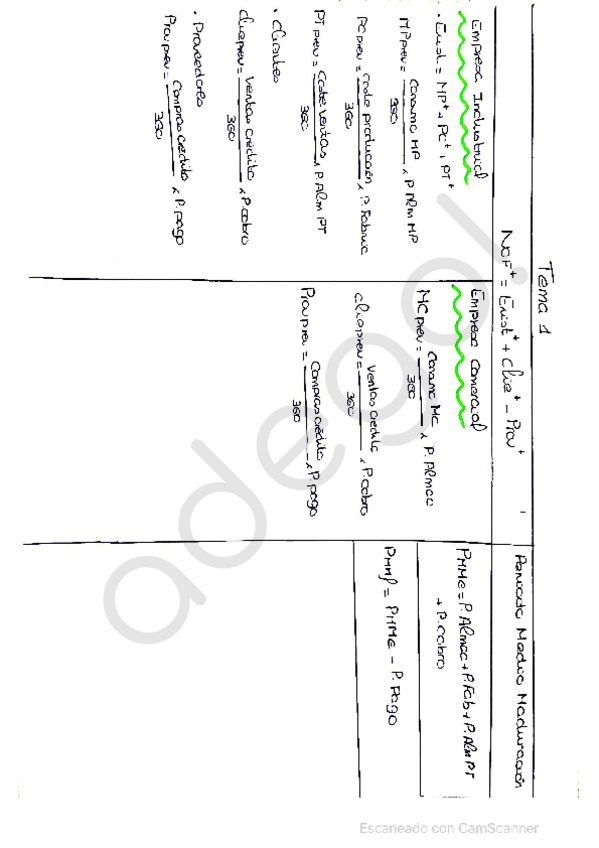 Tema 1
NOF⁺ = Exist⁺ + Clie⁺ - Prov⁺
Empresa Industrial
· Exist = MP⁺ + PC⁺ + PT⁺
MP prev = Consumo MP / 360 x P. Alm MP
PC prev = Coste producción / 360 x P. Fabric
PT prev = Coste ventas / 360 x P. Alm PT
· Clientes
Clie prev = Ventas crédito / 360 x P. cobro
· Proveedores
Prov prev = Compras crédito / 360 x P. pago
Empresa Comercial
MC prev = Consumo MC / 360 x P. Almac
Clie prev = Ventas crédito / 360 x P. cobro
Prov prev = Compras crédito / 360 x P. pago
Periodo Medio Maduración
PMMe = P. Almac + P. Fab + P. Alm PT
+ P. cobro
PMMf = PMMe - P. pago
adego!
Escaneado con CamScanner